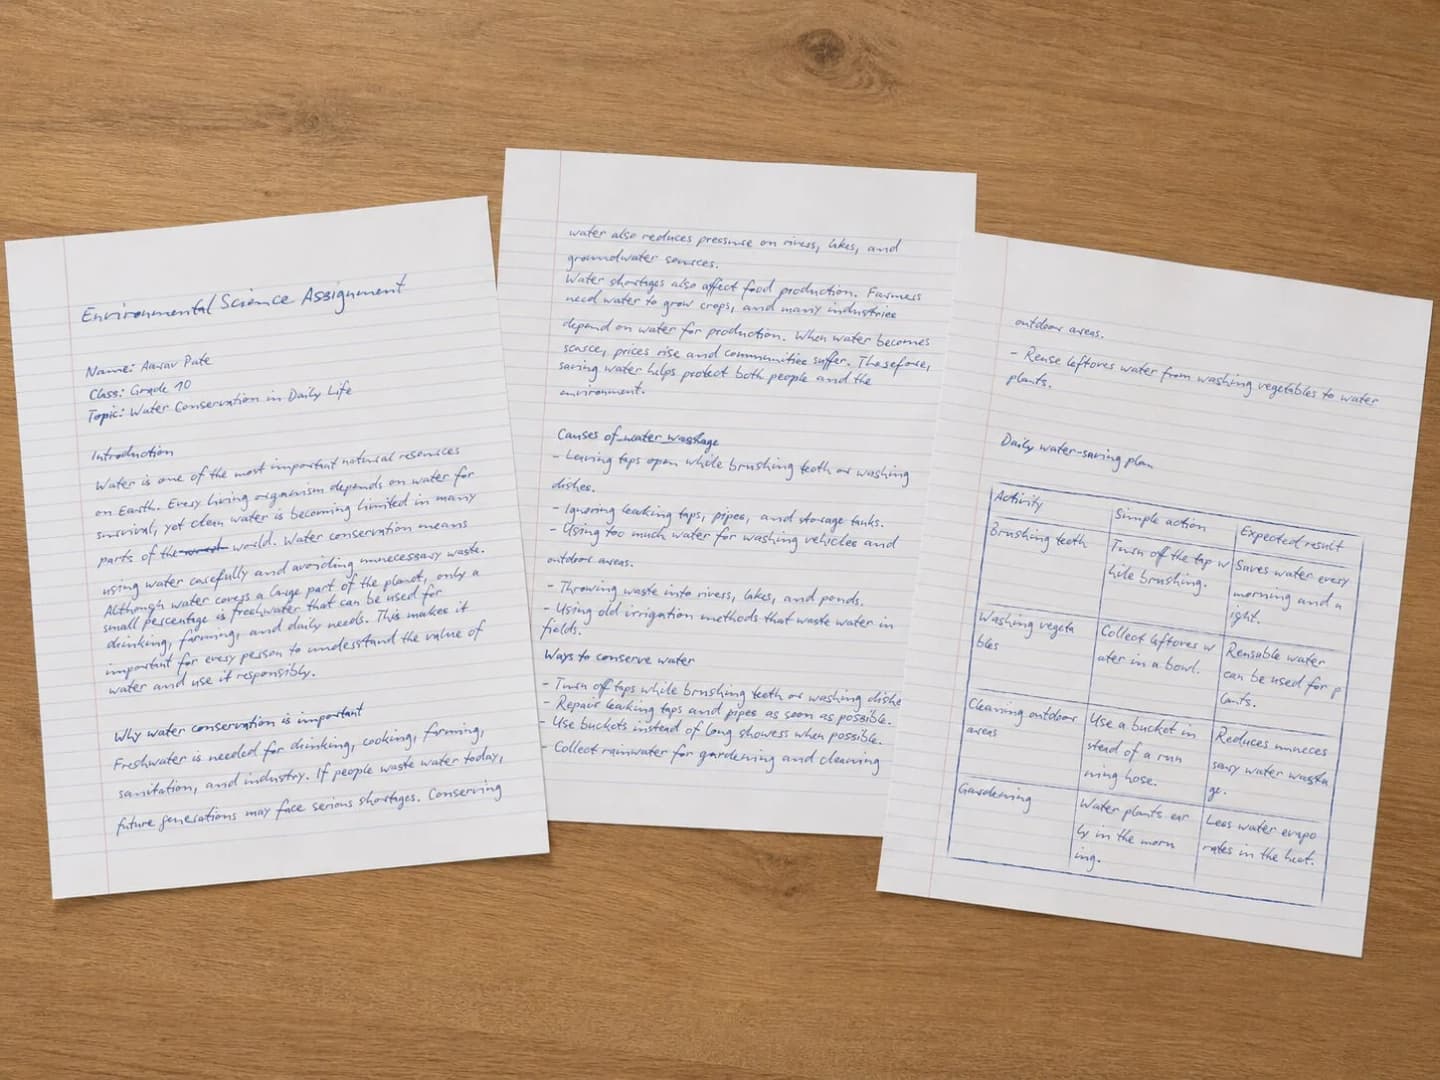 Environmental Science Assignment
Name: Aarav Pate
Class: Grade 10
Topic: Water Conservation in Daily Life
Introduction
Water is one of the most important natural resources
on Earth. Every living organism depends on water for
survival, yet clean water is becoming limited in many
parts of the world. Water conservation means
using water carefully and avoiding unnecessary waste.
Although water covers a large part of the planet, only a
small percentage is freshwater that can be used for
drinking, farming, and daily needs. This makes it
important for every person to understand the value of
water and use it responsibly.
Why water conservation is important
Freshwater is needed for drinking, cooking, farming,
sanitation, and industry. If people waste water today,
future generations may face serious shortages. Conserving
water also reduces pressure on rivers, lakes, and
groundwater sources.
Water shortages also affect food production. Farmers
need water to grow crops, and many industries
depend on water for production. When water becomes
scarce, prices rise and communities suffer. Therefore,
saving water helps protect both people and the
environment.
Causes of water washage
- Leaving taps open while brushing teeth or washing
dishes.
- Ignoring leaking taps, pipes, and storage tanks.
- Using too much water for washing vehicles and
outdoor areas.
- Throwing waste into rivers, lakes, and ponds.
- Using old irrigation methods that waste water in
fields.
Ways to conserve water
- Turn off taps while brushing teeth or washing dishe
- Repair leaking taps and pipes as soon as possible.
- Use buckets instead of long showers when possible.
- Collect rainwater for gardening and cleaning
outdoor areas.
- Reuse leftover water from washing vegetables to water
plants.
Daily water-saving plan
Activity
Simple action
Expected result
Brushing teeth
Turn off the tap w
hile brushing.
Saves water every
morning and n
ight.
Washing vegeta
bles
Collect leftover w
ater in a bowl.
Reusable water
can be used for p
lants.
Cleaning outdoor
areas
Use a bucket in
stead of a run
ning hose.
Reduces unneces
sary water wasta
ge.
Gardening
Water plants ear
ly in the morn
ing.
Less water evapo
rates in the heat.